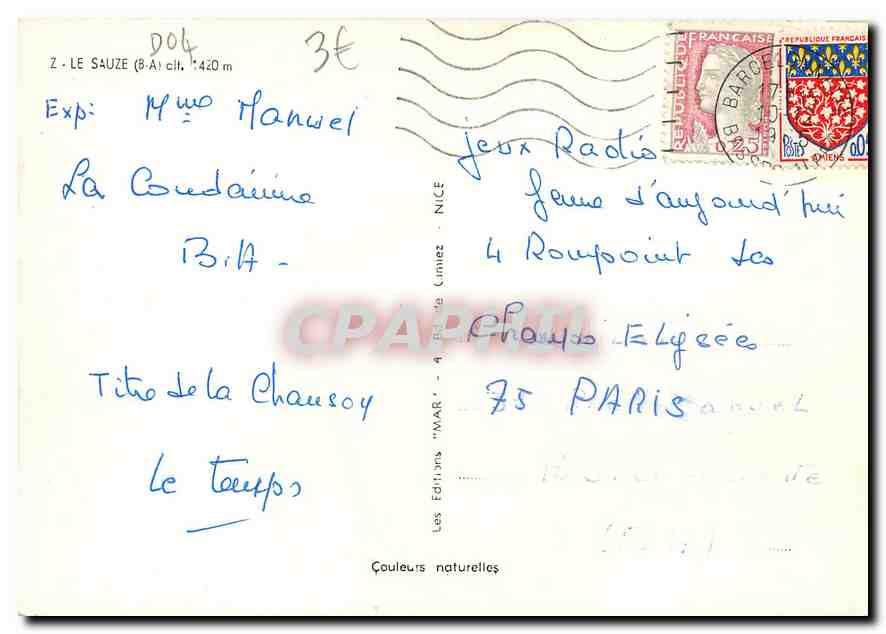 D04
3€
Z - LE SAUZE (B-A) alt. 1420 m
Exp: Mme Manuel
La Condamine
B.A -
Titre de la Chanson
Le temps
Les Editions "MAR" - 4 Bd de Cimiez - NICE
Couleurs naturelles
RÉPUBLIQUE FRANÇAISE
0,25
REPUBLIQUE FRANÇAISE
POSTES
0,05
AMIENS
BARCEL
17
10
19
jeux Radio
femme d'aujourd'hui
4 Rompoint des
Champs Elysées
75 PARIS
CPAPHIL